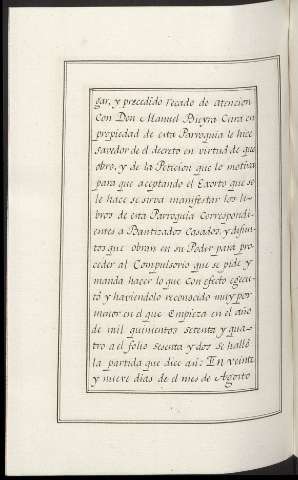 gar, y precedido recado de atencion
con Don Manuel Bieyra Cura en
propiedad de esta Parroquia le hice
savedor de el decreto en virtud de que
obro, y de la Peticion que lo motiva
para que aceptando el Exorto que se
le hace se sirva manifestar los Li-
bros de esta Parroquia Correspondi-
entes a Bautizados Casados, y difun-
tos que obran en su Poder para pro-
ceder al Compulsorio que se pide y
manda hacer lo que Con efecto egecu-
tó y haviendolo reconocido muy por
menor en el que Empieza en el año
de mil quinientos setenta y qua-
tro a el folio sesenta y dos se halló
la partida que dice asi: En veinte
y nueve dias de el mes de Agosto